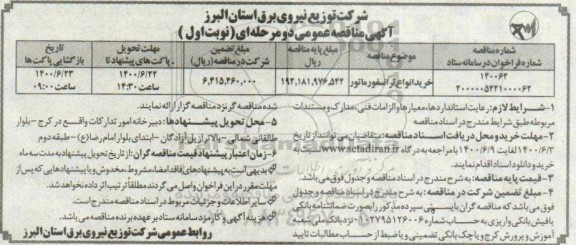 شرکت توزیع نیروی برق استان البرز
آگهی مناقصه عمومی دو مرحله‌ای (نوبت اول)
شماره مناقصه
شماره فراخوان در سامانه ستاد
موضوع مناقصه
مبلغ پایه مناقصه
ریال
مبلغ تضمین
شرکت در مناقصه (ریال)
مهلت تحویل
پاکت های پیشنهاد تا
تاریخ
بازگشایی پاکت ها
۱۴۰۰۶۲
۲۰۰۰۰۰۵۲۲۱۰۰۰۰۶۲
خرید انواع ترانسفورماتور
۱۹۲,۱۸۱,۹۷۶,۵۴۲
۶,۴۱۵,۴۶۰,۰۰۰
۱۴۰۰/۶/۲۲
ساعت ۱۴:۳۰
۱۴۰۰/۶/۲۳
ساعت ۰۹:۰۰
۱-شرایط لازم: رعایت استانداردها، معیارها و الزامات فنی، مدارک و مستندات
مربوطه طبق شرایط مندرج در اسناد مناقصه
۲-مهلت خرید و محل دریافت اسناد مناقصه: متقاضیان می توانند از تاریخ
۱۴۰۰/۶/۳ لغایت ۱۴۰۰/۶/۹ با مراجعه به درگاه www.setadiran.ir نسبت به
خرید و دانلود اسناد اقدام نمایند.
۳-قیمت پایه مناقصه: به شرح مندرج در اسناد مناقصه و جدول فوق می باشد.
۴-مبلغ تضمین شرکت در مناقصه: به شرح مندرج در اسناد مناقصه و جدول
فوق می باشد که مناقصه گران بایستی سپرده مذکور را بصورت ضمانتنامه بانکی
یا فیش بانکی واریزی به حساب شماره ۰۱۰۲۷۹۵۱۲۶۰۰۶ نزد بانک ملی شعبه
آموزش و پرورش کرج و یا چک بانکی تضمینی و یا ضبط از حساب مطالبات تایید
شده مناقصه گر نزد مناقصه گزار ارائه نمایند.
۵- محل تحویل پیشنهادها: دبیرخانه امور تدارکات واقع در کرج - بلوار
طالقانی شمالی - بالاتر از پل آزادگان - ابتدای بلوار امام رضا (ع) - طبقه دوم
۶- زمان اعتبار پیشنهاد قیمت مناقصه گران: از تاریخ تحویل پیشنهاد به مدت سه ماه
بدیهی است به پیشنهادهای فاقد امضا، مشروط، مخدوش و یا پیشنهادهایی که پس از
مهلت مقرر در این فراخوان واصل می گردند مطلقا ترتیب اثر داده نخواهد شد.
سایر اطلاعات و جزئیات مربوط در اسناد مناقصه مندرج است.
هزینه آگهی و کارمزد سامانه ستاد بر عهده برنده مناقصه می باشد.
روابط عمومی شرکت توزیع نیروی برق استان البرز